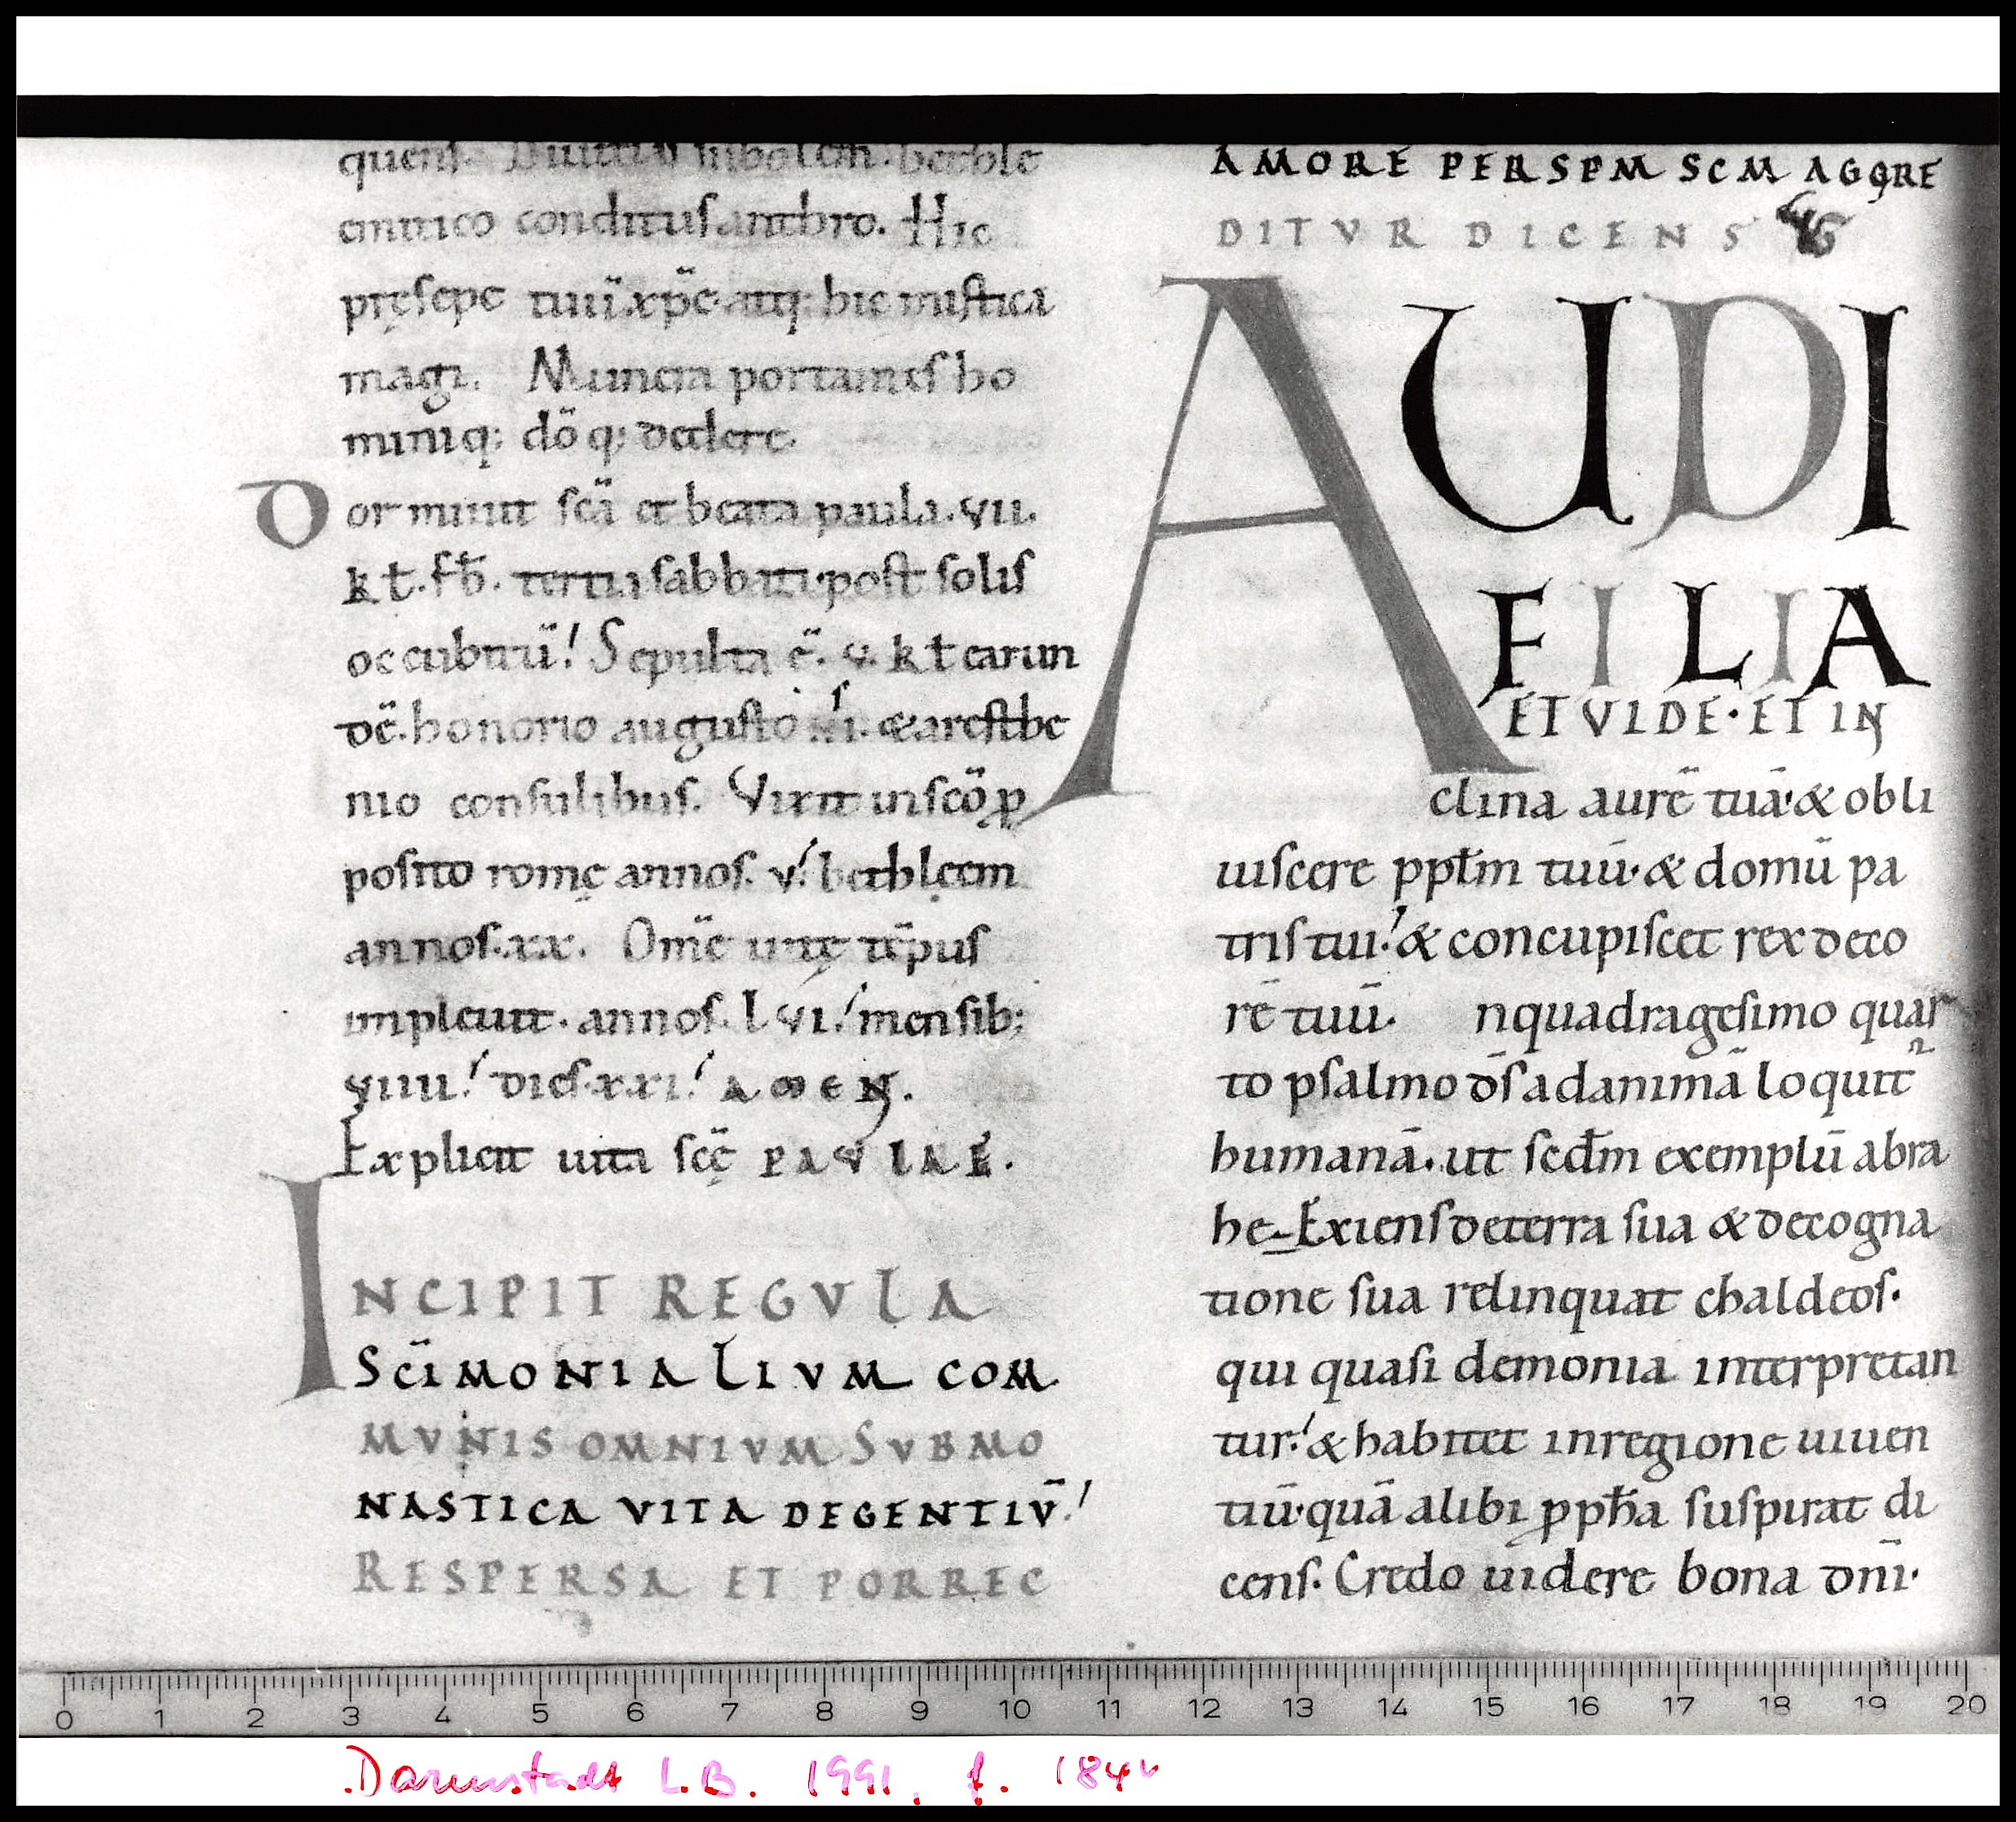 amico conditus anthro. Hic
pręsepe tuū. xp̄e. atq; hic mistica
magi. Munera portantes ho
miniq; dō q; dedere.
Dormiuit scā et beata paula. VII.
kł. fb̄. tertia sabbati post solis
occubitū! Sepulta ē. V. kł earun
dē. honorio augusto. & aresthe
nio consulibus. Vixit in scō ꝓ
posito romę annos. V! bethleem
annos. xx. Om̄e uitę tēpus
impleuit. annos. LVI! mensib;
VIIII! dies. xxi! AMEN.
Explicit uita scę̄ PAVLAE.
INCIPIT REGVLA
SC̄IMONIALIVM COM
MVNIS OMNIVM SVBMO
NASTICA VITA DEGENTIV̄!
RESPERSA ET PORREC
AMORE PER SPM SCM AGGRE
DITVR DICENS
AUDI
FILIA
ET VIDE. ET IN
clina aurē tuā. & obli
uiscere pptm tuū. & domū pa
tris tui! & concupiscet rex deco
rē tuū. nquadragesimo quar
to psalmo dš ad animā loquit
humanā. ut scdm exemplū abra
he Exiens de terra sua & de cogna
tione sua relinquat chaldeos.
qui quasi demonia interpretan
tur! & habitet in regione uiuen
tiū. quā alibi ꝓpha suspirat di
cens. Credo uidere bona dn̄i.
0 1 2 3 4 5 6 7 8 9 10 11 12 13 14 15 16 17 18 19 20
Darmstadt L.B. 1991, f. 184v